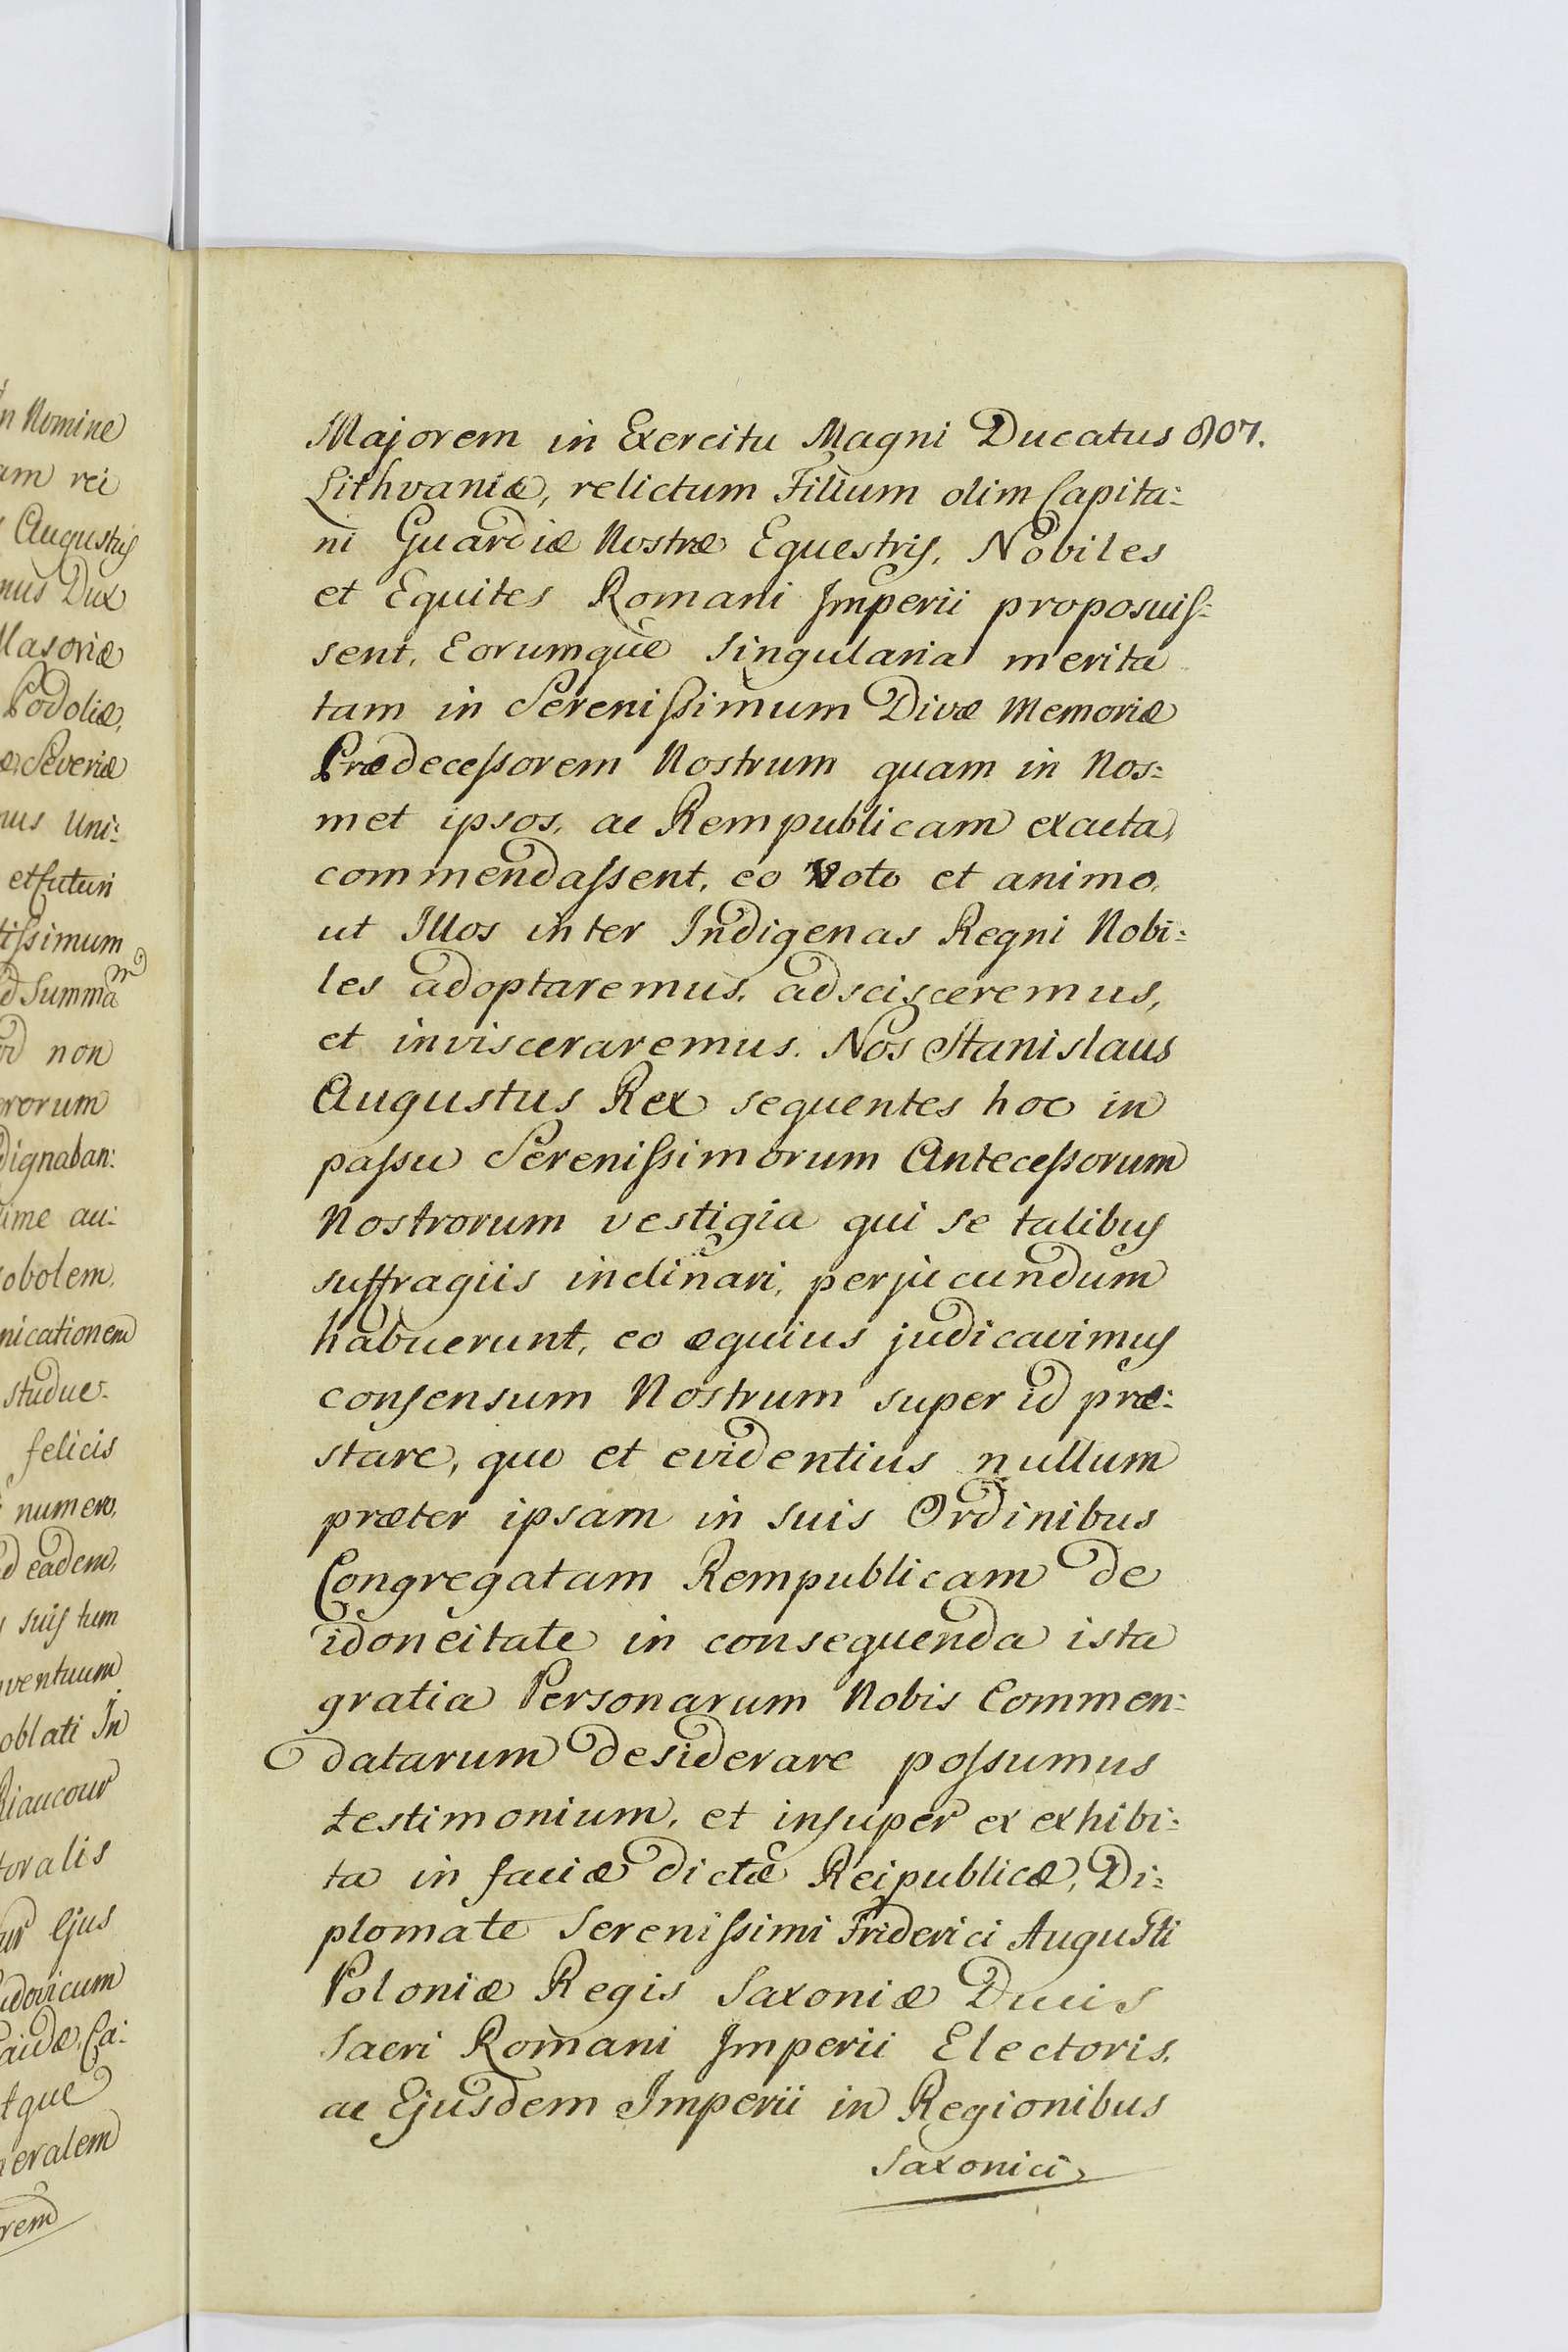 n Nomine
am rei
Augustus
nus Dux
Masoviæ
Podoliæ,
æ, Severiæ
nus Uni:
et futuri
tissimum
d Summam
od non
ororum
dignaban:
ime au:
obolem,
nicationem
studue-
felicis
numero,
d eadem,
suis tum
ventuum
oblati In
Riaucour
toralis
ur Ejus
udovicum
aidæ, Ca:
tque
neralem
rem
Majorem in Exercitu Magni Ducatus 807.
Lithvaniæ, relictum Filium olim Capita:
ni Guardiæ Nostræ Equestris, Nobiles
et Equites Romani Imperii proposuis:
sent, Eorumque singularia merita
tam in Serenissimum Divæ Memoriæ
Prædecessorem Nostrum quam in Nos:
met ipsos, ac Rempublicam exacta,
commendassent, eo Voto et animo,
ut Illos inter Indigenas Regni Nobi:
les adoptaremus, adscisceremus,
et invisceraremus. Nos Stanislaus
Augustus Rex sequentes hoc in
passu Serenissimorum Antecessorum
Nostrorum vestigia qui se talibus
suffragiis inclinari, perjucundum
habuerunt, eo æquius judicavimus
consensum Nostrum super id præ:
stare, quo et evidentius nullum
præter ipsam in suis Ordinibus
Congregatam Rempublicam de
idoneitate in consequenda ista
gratia Personarum Nobis Commen:
datarum desiderare possumus
testimonium, et insuper ex exhibi:
ta in faciæ dictæ Reipublicæ, Di:
plomate Serenissimi Friderici Augusti
Poloniæ Regis Saxoniæ Ducis
Sacri Romani Imperii Electoris,
ac Ejusdem Imperii in Regionibus
Saxonici